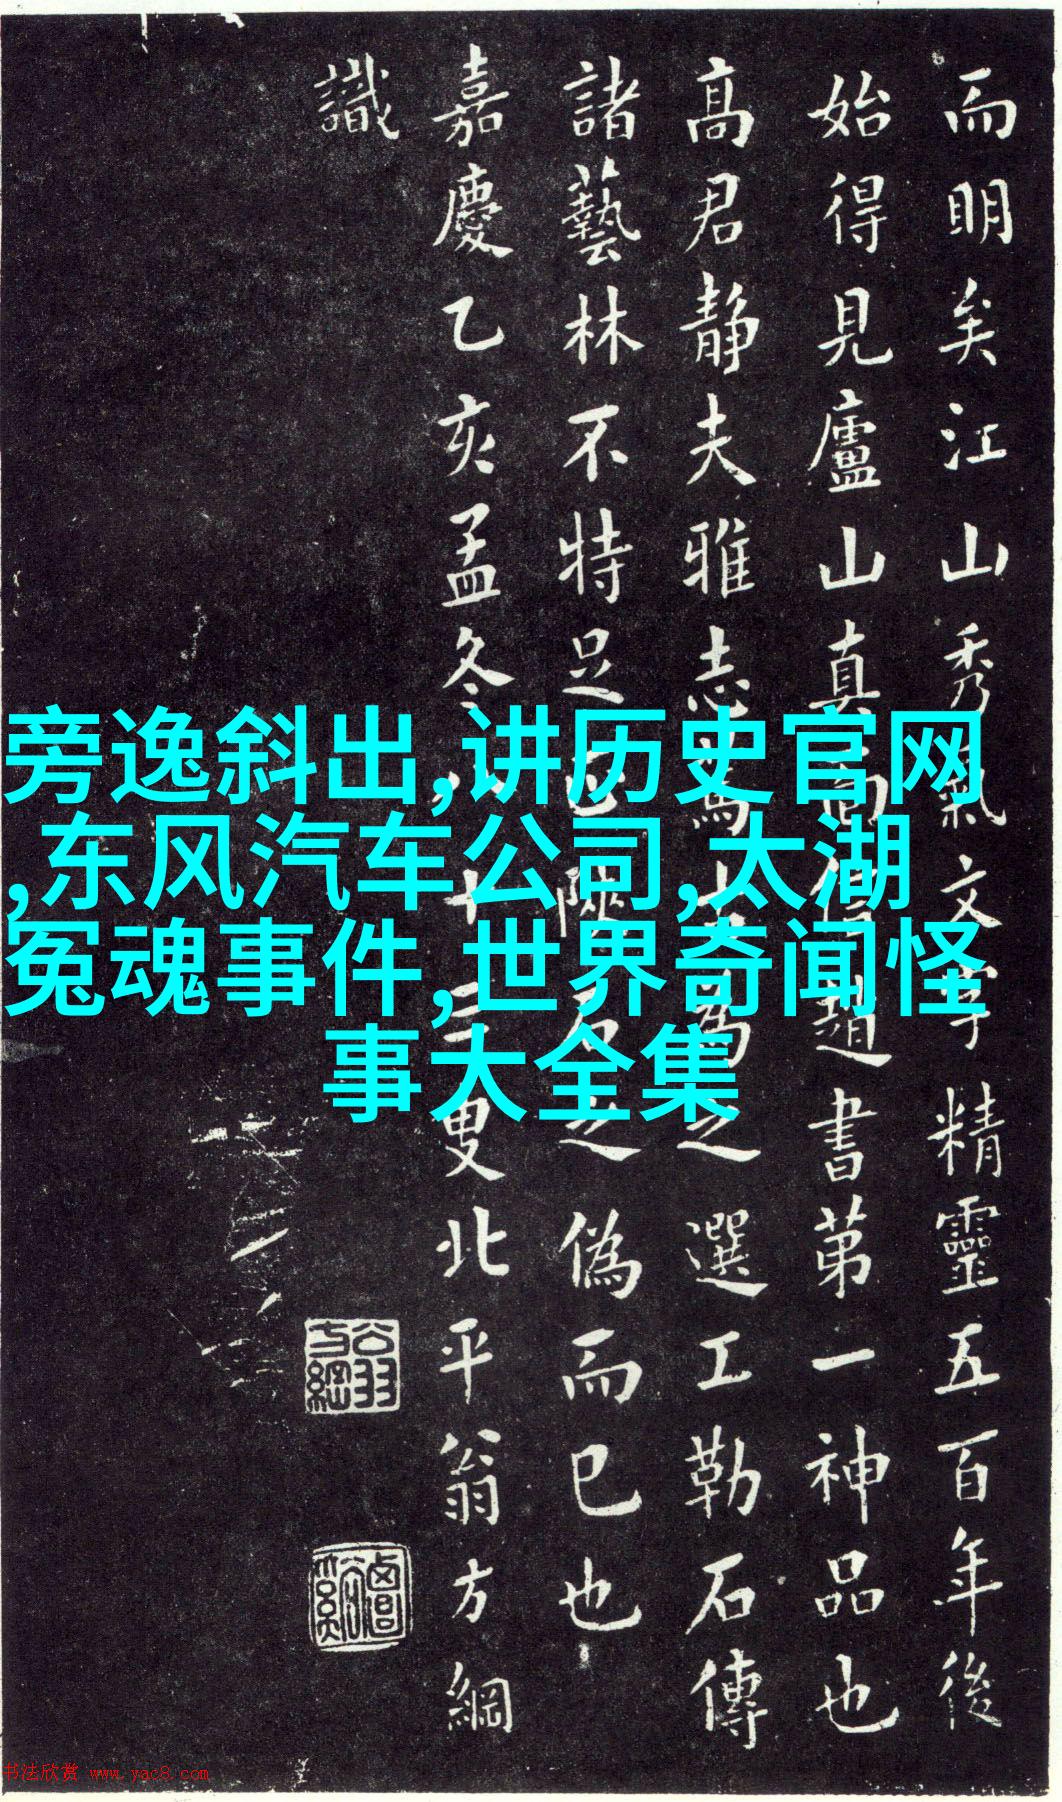 而明矣江山秀氣文字精靈五百年後
始得見廬山真面但趙書第一神品也
高君静夫雅志為之選工勒石傳
諸藝林不特足之偽而已也
嘉慶乙亥孟冬八十三叟北平翁方綱
識
旁逸斜出,讲历史官网
,东风汽车公司,太湖
冤魂事件,世界奇闻怪
事大全集
翁方綱
书法欣赏 www.yac8.com